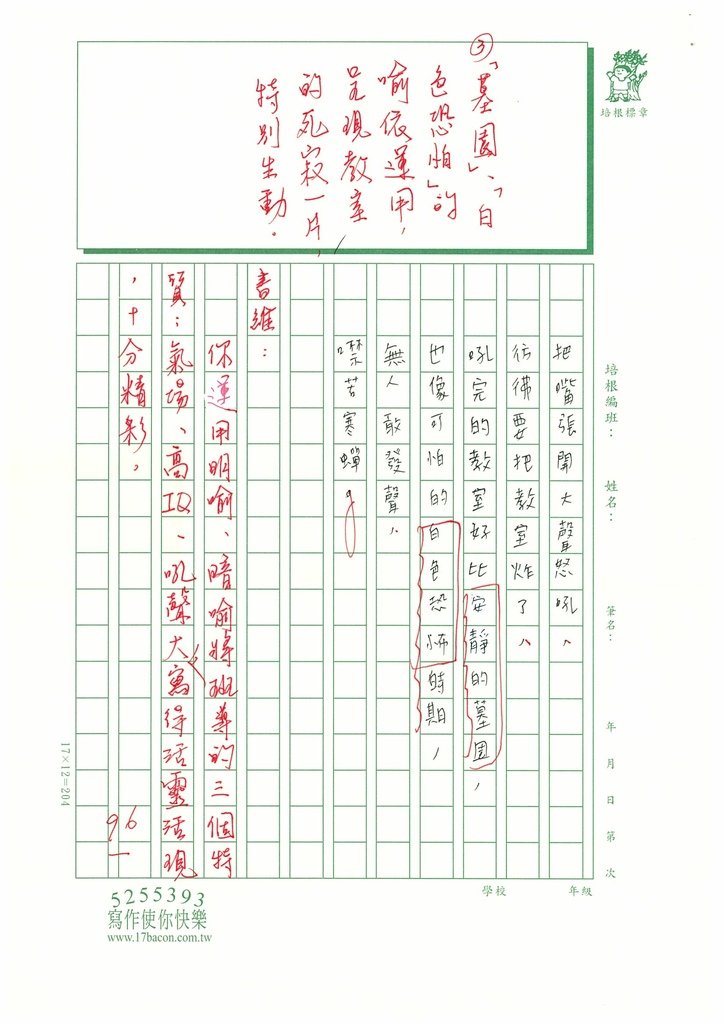 ③「墓園」、「白
色恐怕」的
喻依運用,
呈現教室
的死寂一片,
特別生動。
培根標章
把嘴張開大聲怒吼,
彷彿要把教室炸了,
吼完的教室好比安靜的墓園,
也像可怕的白色恐怖時期,
無人敢發聲,
噤若寒蟬。
書維:
你運用明喻、暗喻將班導的三個特
質:氣場、高IQ、吼聲大寫得活靈活現
,十分精彩。
96
培根編班: 姓名: 筆名: 年 月 日 第 次
17×12=204
學校 年級
5255393
寫作使你快樂
www.17bacon.com.tw